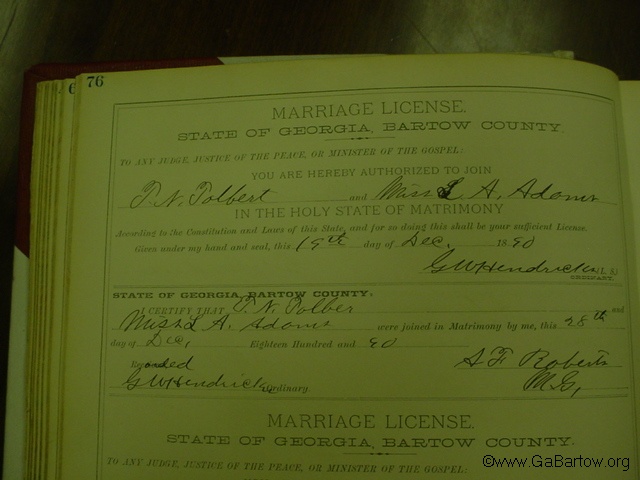 6 76
MARRIAGE LICENSE.
STATE OF GEORGIA, BARTOW COUNTY.
TO ANY JUDGE, JUSTICE OF THE PEACE, OR MINISTER OF THE GOSPEL:
YOU ARE HEREBY AUTHORIZED TO JOIN
T. N. Tolbert and Miss L A. Adams
IN THE HOLY STATE OF MATRIMONY
According to the Constitution and Laws of this State, and for so doing this shall be your sufficient License.
Given under my hand and seal, this 19th day of Dec. 1890
GW Hendricks (L. S.)
ORDINARY.
STATE OF GEORGIA, BARTOW COUNTY.
I CERTIFY THAT T. N. Tolber and
Miss L A. Adams were joined in Matrimony by me, this 28th
day of Dec, Eighteen Hundred and 90
Recorded S. F. Roberts
GW Hendricks Ordinary. M.G,
MARRIAGE LICENSE.
STATE OF GEORGIA, BARTOW COUNTY.
TO ANY JUDGE, JUSTICE OF THE PEACE, OR MINISTER OF THE GOSPEL:
©www.GaBartow.org